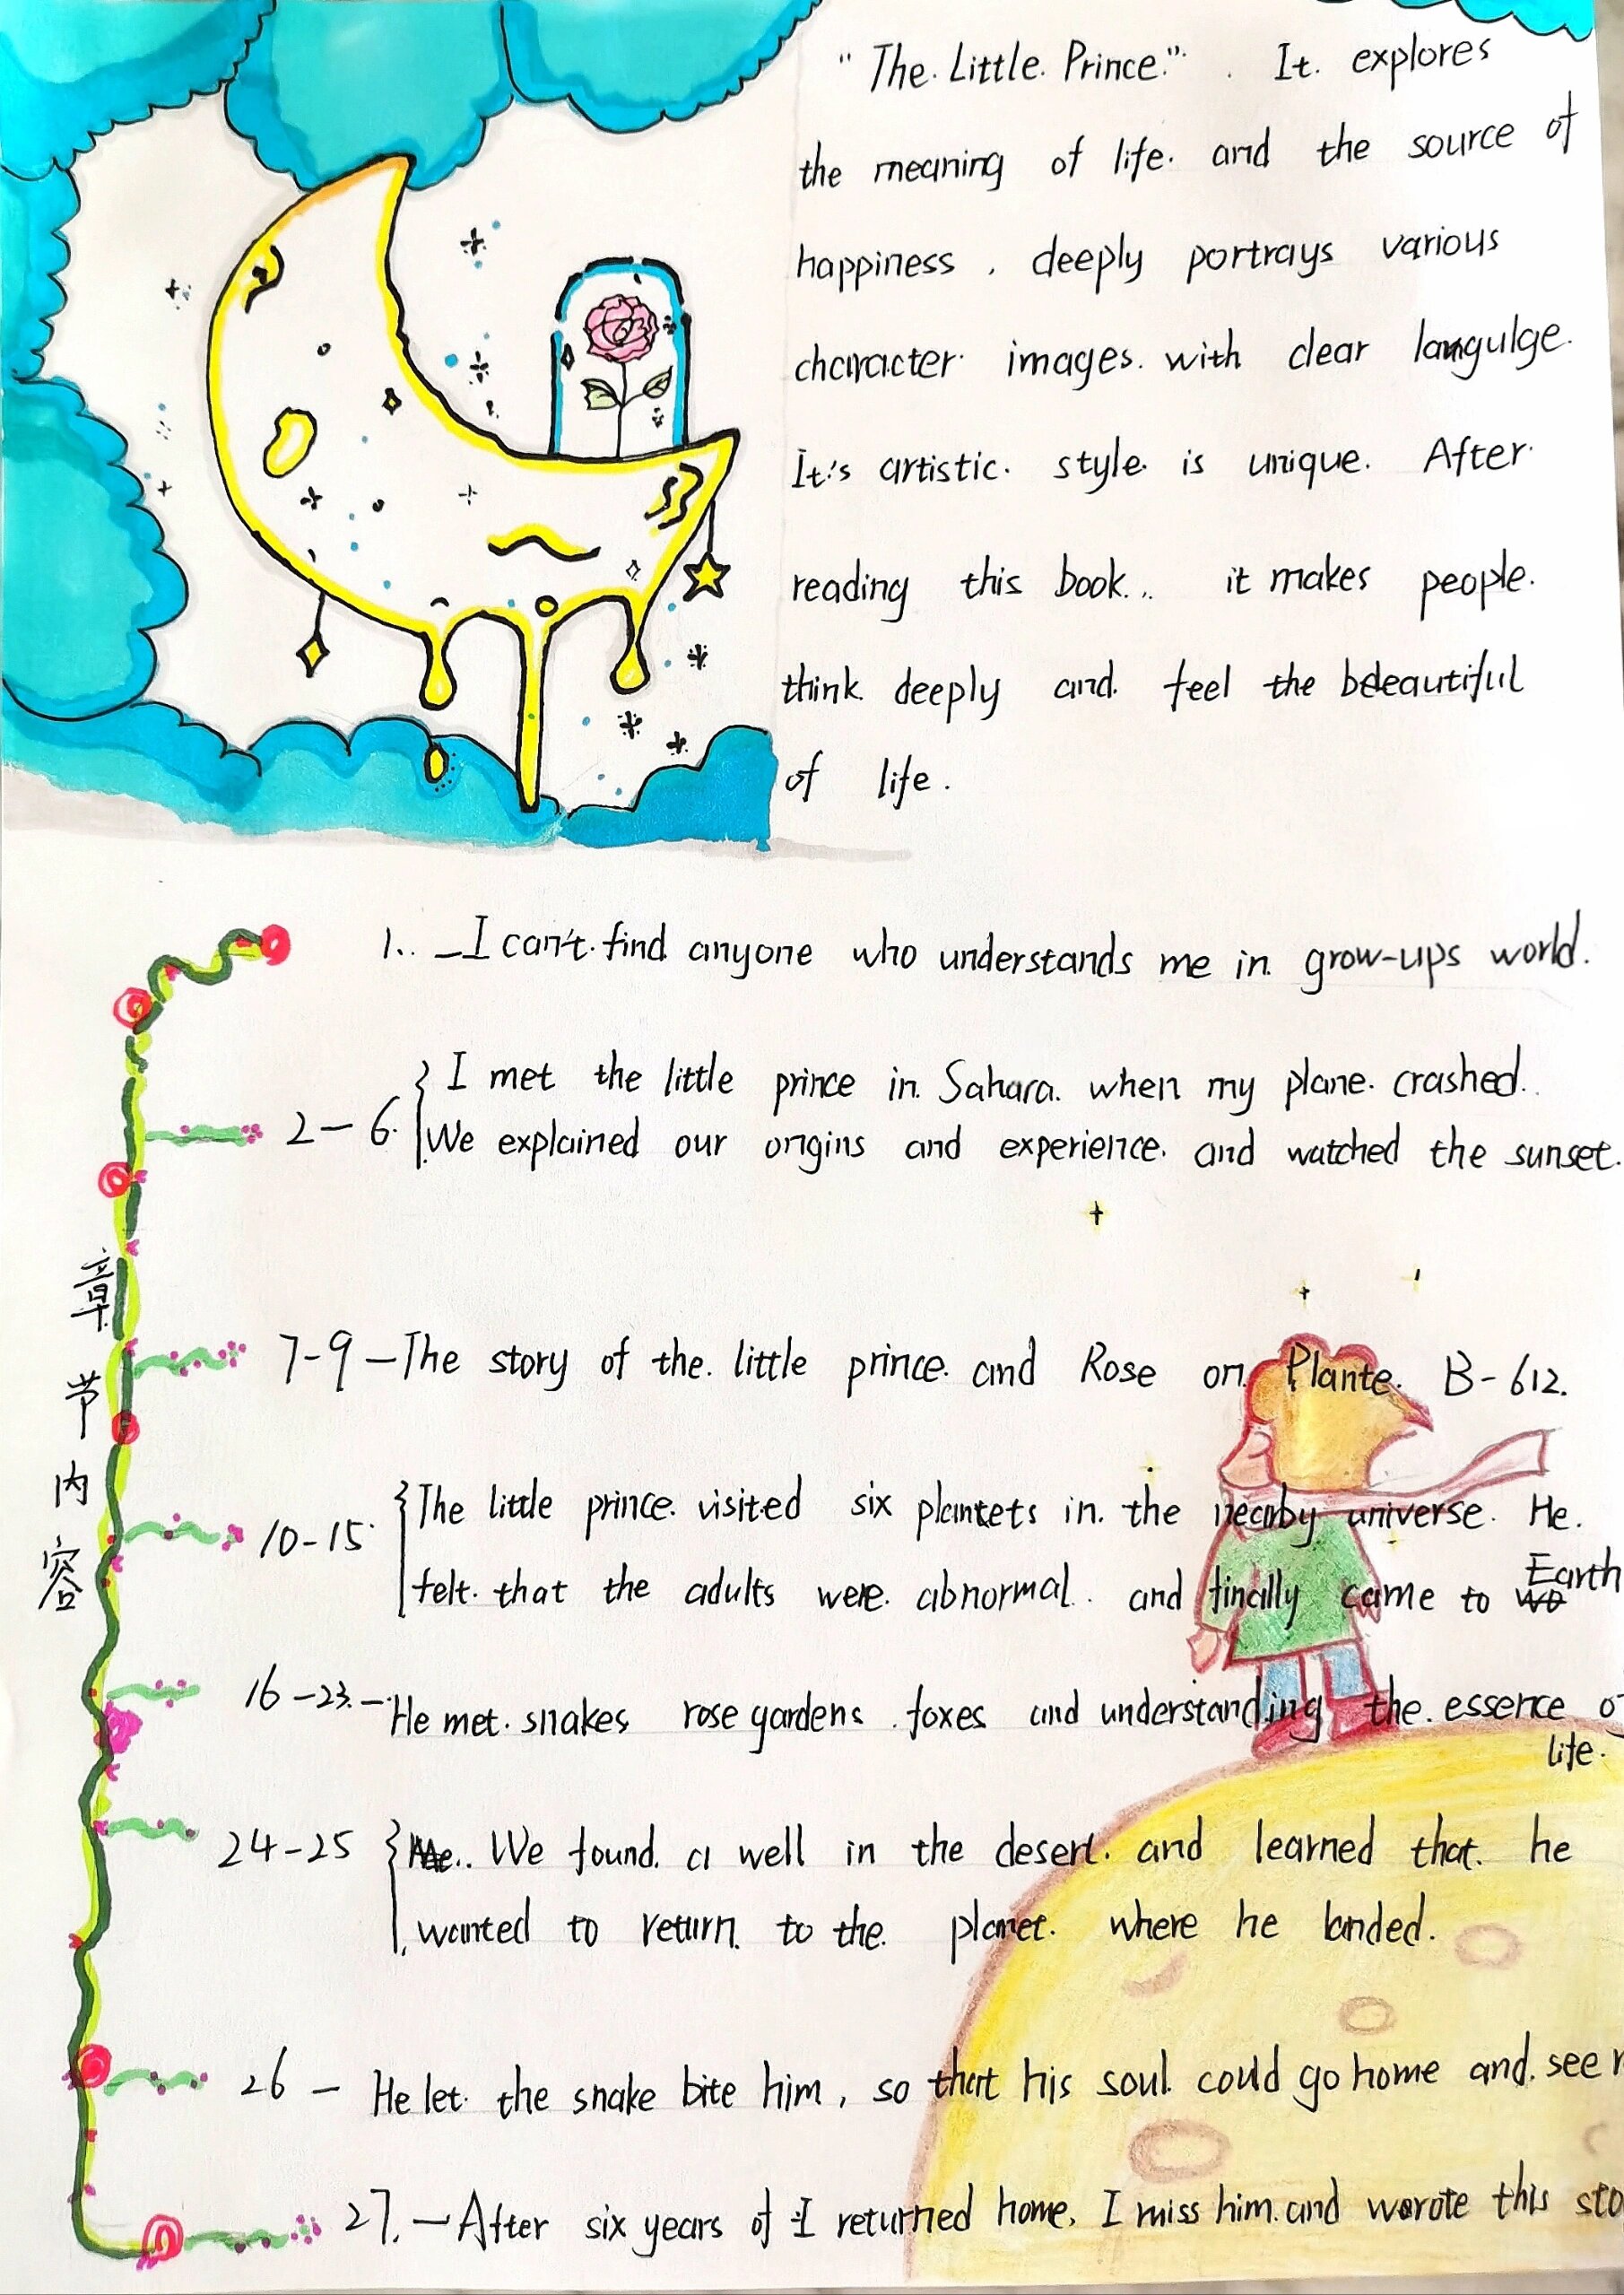 "The Little Prince". It explores
the meaning of life and the source of
happiness, deeply portrays various
character images with clear langulge.
It's artistic style is unique. After
reading this book.. it makes people
think deeply and feel the bdeautiful
of life.
1. — I can't find anyone who understands me in grow-ups world.
I met the little prince in Sahara when my plane crashed.
2-6 We explained our origins and experience and watched the sunset.
章节内容
7-9 — The story of the little prince and Rose on Plante B-612.
10-15 The little prince visited six plantets in the nearby universe. He
felt that the adults were abnormal and finally came to Earth
16-23 — He met snakes rose gardens foxes and understanding the essence
life.
24-25 We found a well in the desert and learned that he
wanted to return to the planet where he landed.
26 — He let the snake bite him, so that his soul could go home and see
27. — After six years of I returned home, I miss him and wrote this sto